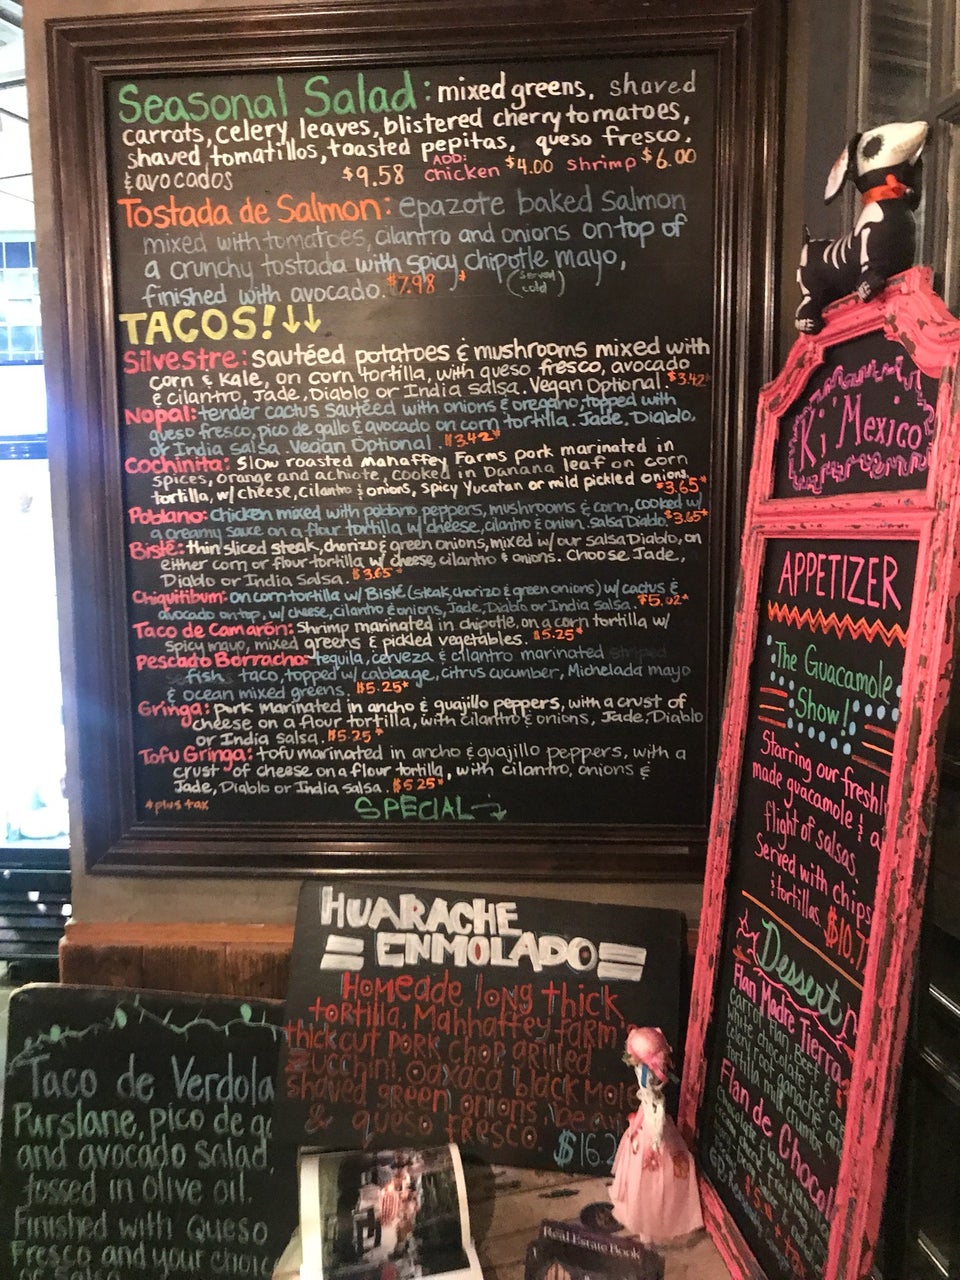 Seasonal Salad: mixed greens, shaved
carrots, celery leaves, blistered cherry tomatoes,
shaved tomatillos, toasted pepitas, queso fresco,
& avocados $9.58 ADD: chicken $4.00 shrimp $6.00
Tostada de Salmon: epazote baked Salmon
mixed with tomatoes, cilantro and onions on top of
a crunchy tostada with spicy chipotle mayo,
finished with avocado. $7.98 * (served cold)
TACOS! ↓↓
Silvestre: sautéed potatoes & mushrooms mixed with
corn & kale, on corn tortilla, with queso fresco, avocado
& cilantro, Jade, Diablo or India Salsa. Vegan Optional. $3.42*
Nopal: tender cactus sautéed with onions & oregano, topped with
queso fresco, pico de gallo & avocado on corn tortilla. Jade. Diablo,
or India salsa. Vegan Optional. $3.42*
Cochinita: Slow roasted Mahaffey Farms pork marinated in
spices, orange and achiote, cooked in banana leaf on corn
tortilla, w/ cheese, cilantro & onions, spicy Yucatan or mild pickled onions. $3.65*
Poblano: Chicken mixed with poblano peppers, mushrooms & corn, cooked w/
a creamy sauce on a flour tortilla w/ cheese, cilantro & onion. Salsa Diablo. $3.65*
Bisté: thin sliced steak, chorizo & green onions, mixed w/ our salsa Diablo, on
either corn or flour tortilla w/ cheese, cilantro & onions. Choose Jade,
Diablo or India Salsa. $3.65*
Chiquitibum: on corn tortilla w/ Bisté (steak, chorizo & green onions) w/ cactus &
avocado on top, w/ cheese, cilantro & onions, Jade, Diablo or India salsa. $5.02*
Taco de Camarón: Shrimp marinated in chipotle, on a corn tortilla w/
spicy mayo, mixed greens & pickled vegetables. $5.25*
Pescado Borracho: tequila, cerveza & cilantro marinated striped
fish taco, topped w/ cabbage, citrus cucumber, Michelada mayo
& ocean mixed greens. $5.25*
Gringa: pork marinated in ancho & guajillo peppers, with a crust of
cheese on a flour tortilla, with cilantro & onions, Jade, Diablo
or India salsa. $5.25*
Tofu Gringa: tofu marinated in ancho & guajillo peppers, with a
crust of cheese on a flour tortilla, with cilantro, onions &
Jade, Diablo or India salsa. $5.25*
*plus tax
SPECIAL
HUARACHE
=ENMOLADO=
Homeade long thick
tortilla, Mahhaffey farm's
thick cut pork chop grilled
zucchini, Oaxaca black mole
shaved green onions,
& queso fresco. $16.2
Taco de Verdola
Purslane, pico de ga
and avocado salad,
tossed in olive oil.
Finished with Queso
Fresco and your choic
of Salsa
Real Estate Book
Ki' Mexico
APPETIZER
The Guacamole
Show!
Starring our freshly
made guacamole & a
flight of salsas.
Served with chips
& tortillas. $10.7
Dessert
Flan Madre Tierra
Carrot Flan, Beet &
white chocolate ice
celery root ganache, and
tortilla milk crumbs.
Flan de Chocol